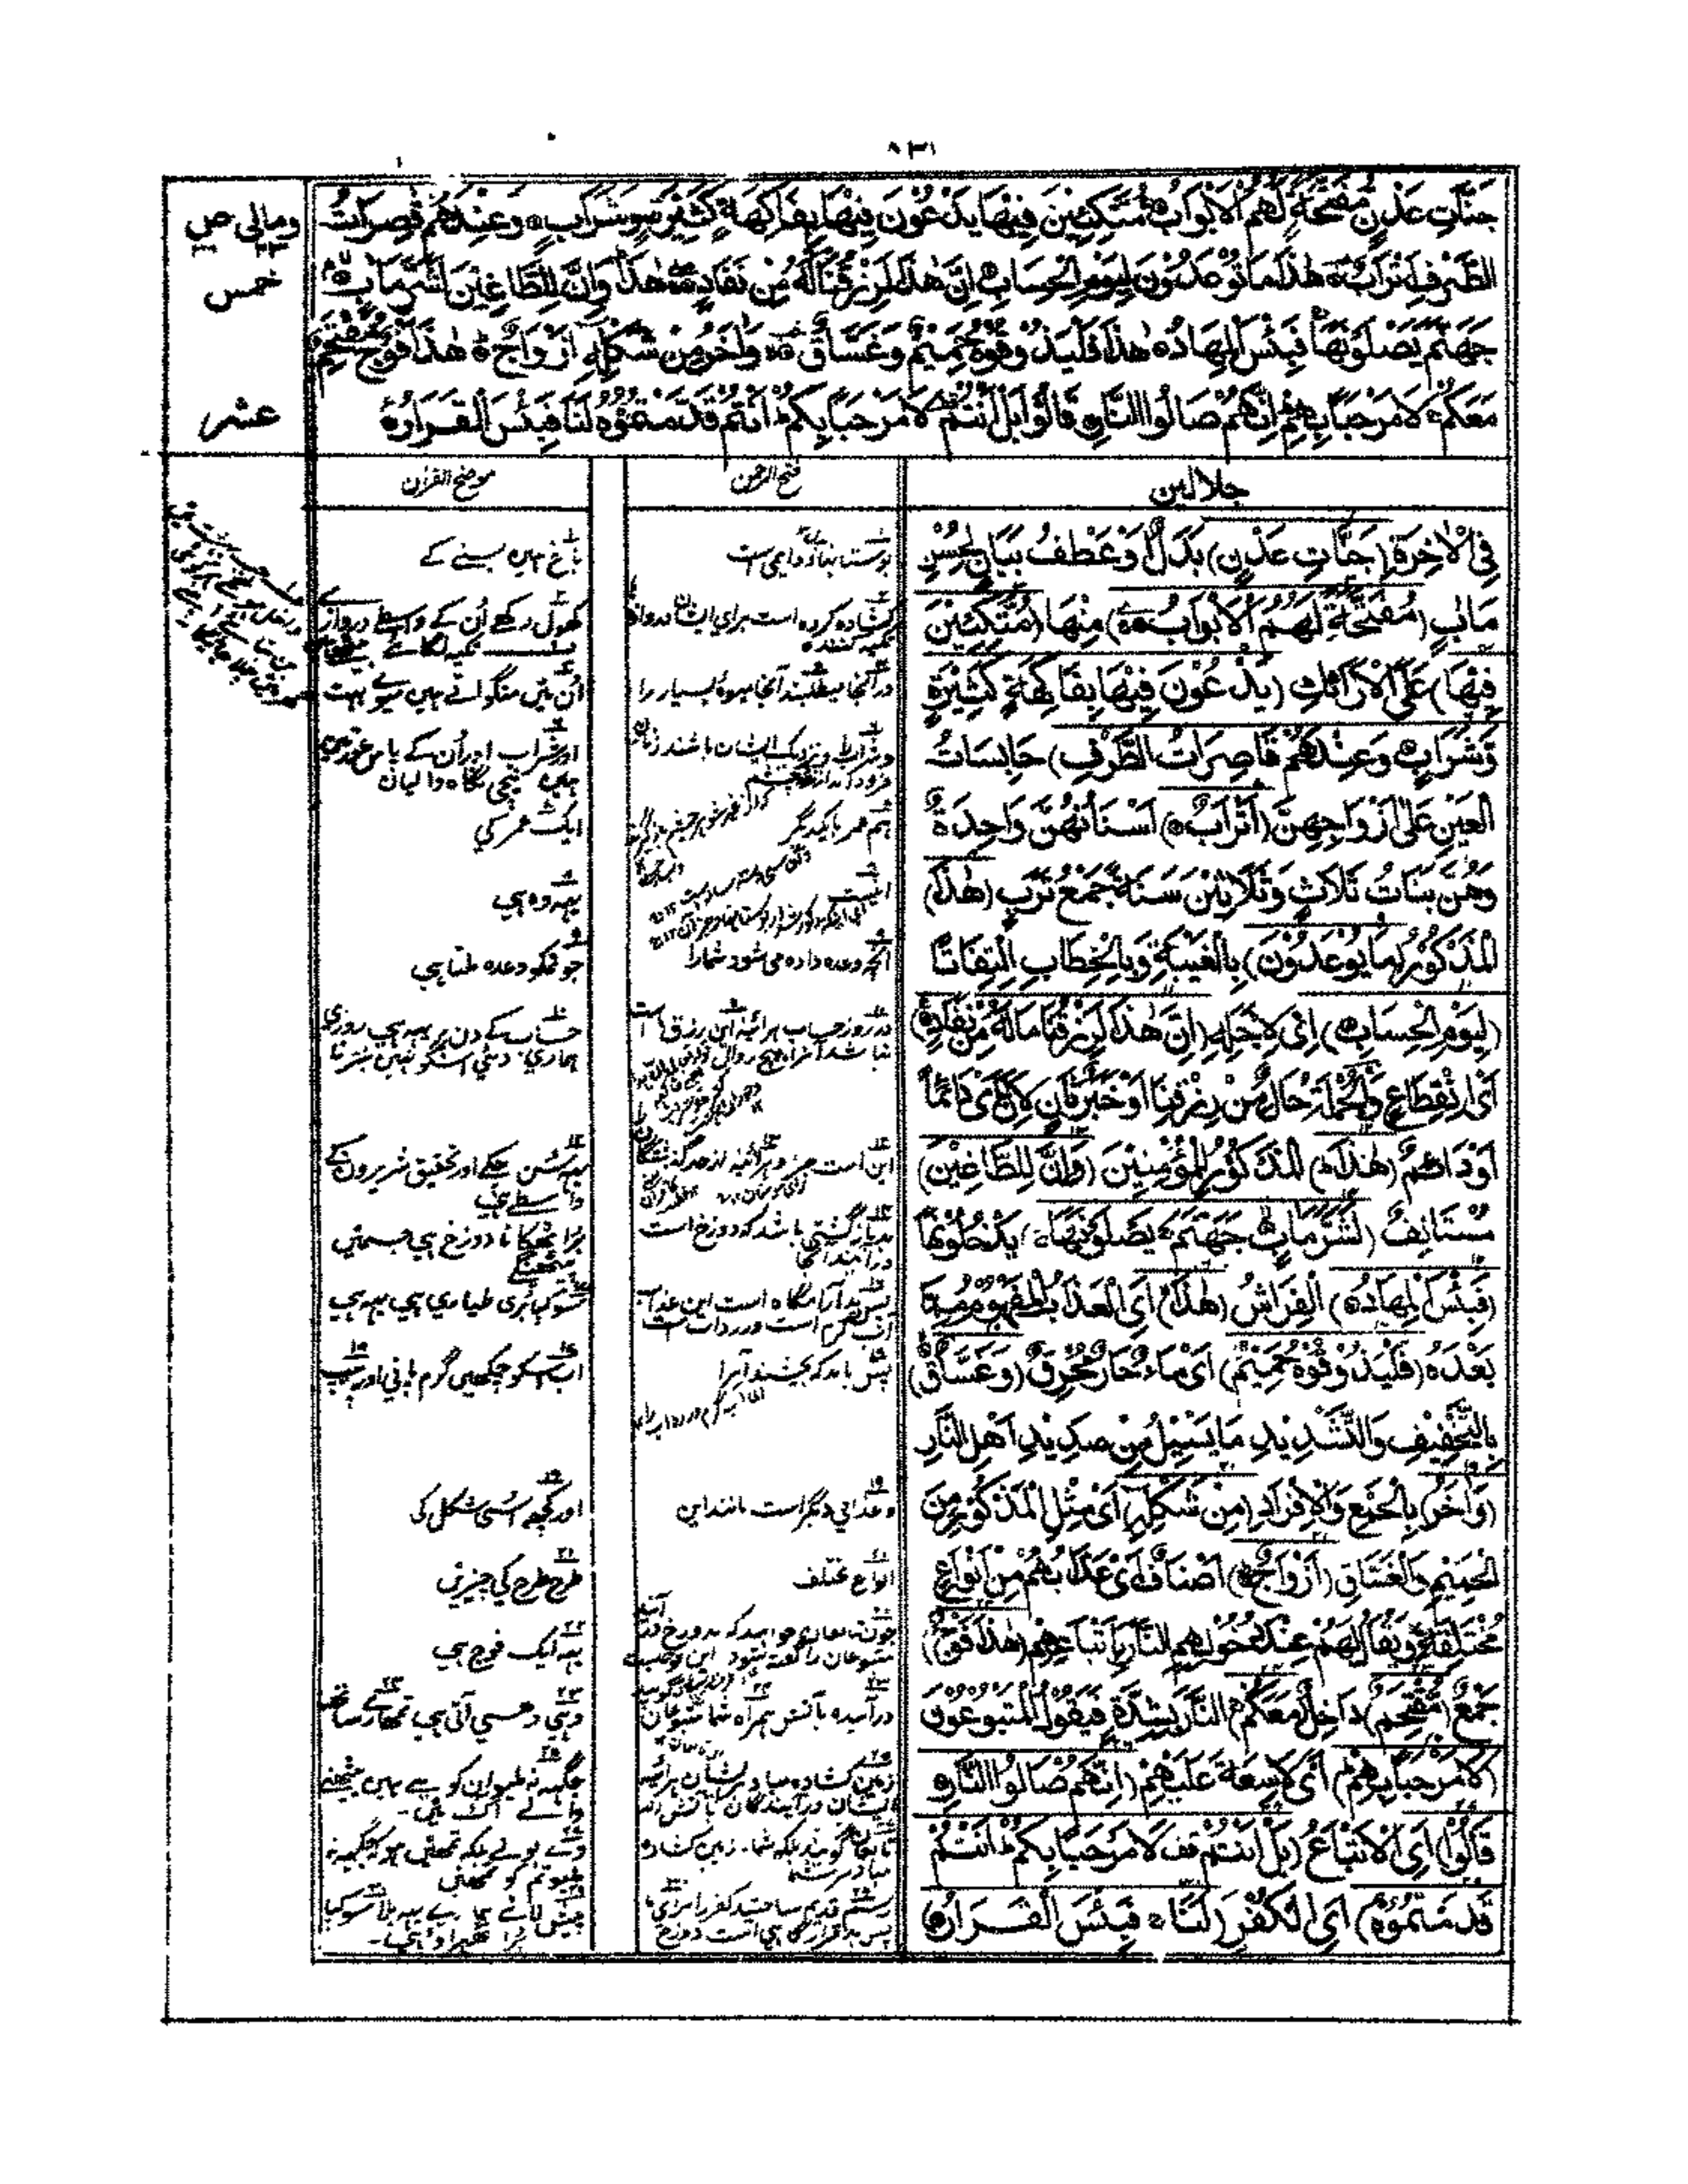 ٨٣١
جَنّٰتِ عَدْنٍ مُّفَتَّحَةً لَّهُمُ الْاَبْوَابُ مُتَّكِئِيْنَ فِيْهَا يَدْعُوْنَ فِيْهَا بِفَاكِهَةٍ كَثِيْرَةٍ وَّشَرَابٍ وَعِنْدَهُمْ قٰصِرٰتُ
الطَّرْفِ اَتْرَابٌ هٰذَا مَا تُوْعَدُوْنَ لِيَوْمِ الْحِسَابِ اِنَّ هٰذَا لَرِزْقُنَا مَا لَهٗ مِنْ نَّفَادٍ هٰذَا وَاِنَّ لِلطَّاغِيْنَ لَشَرَّ مَاٰبٍ
جَهَنَّمَ يَصْلَوْنَهَا فَبِئْسَ الْمِهَادُ هٰذَا فَلْيَذُوْقُوْهُ حَمِيْمٌ وَّغَسَّاقٌ وَّاٰخَرُ مِنْ شَكْلِهٖ اَزْوَاجٌ هٰذَا فَوْجٌ مُّقْتَحِمٌ
مَّعَكُمْ لَا مَرْحَبًا بِهِمْ اِنَّهُمْ صَالُوا النَّارِ قَالُوْا بَلْ اَنْتُمْ لَا مَرْحَبًا بِكُمْ اَنْتُمْ قَدَّمْتُمُوْهُ لَنَا فَبِئْسَ الْقَرَارُ
ومالى ص
٢٣ ٣٨
خمس
عشر
جلالين
فِي الْاٰخِرَةِ (جَنّٰتِ عَدْنٍ) بَدَلٌ اَوْ عَطْفُ بَيَانٍ لِحُسْنِ
مَاٰبٍ (مُفَتَّحَةً لَهُمُ الْاَبْوَابُ) مِنْهَا (مُتَّكِئِيْنَ
فِيْهَا) عَلَى الْاَرَائِكِ (يَدْعُوْنَ فِيْهَا بِفَاكِهَةٍ كَثِيْرَةٍ
وَّشَرَابٍ وَعِنْدَهُمْ قَاصِرَاتُ الطَّرْفِ) حَابِسَاتُ
الْعَيْنِ عَلٰى اَزْوَاجِهِنَّ (اَتْرَابٌ) اَسْنَانُهُنَّ وَاحِدَةٌ
وَهُنَّ بَنَاتُ ثَلَاثٍ وَثَلَاثِيْنَ سَنَةً جَمْعُ تِرْبٍ (هٰذَا)
الْمَذْكُوْرُ (مَا يُوْعَدُوْنَ) بِالْغَيْبَةِ وَبِالْخِطَابِ اِلْتِفَاتًا
(لِيَوْمِ الْحِسَابِ) اَيْ لِاَجْلِهِ (اِنَّ هٰذَا لَرِزْقُنَا مَا لَهٗ مِنْ نَّفَادٍ)
اَيْ اِنْقِطَاعٍ وَالْجُمْلَةُ حَالٌ مِّنْ رِزْقِنَا اَوْ خَبَرٌ ثَانٍ لِاِنَّ اَيْ دَائِمًا
اَوْ دَائِمٌ (هٰذَا) الْمَذْكُوْرُ لِلْمُؤْمِنِيْنَ (وَاِنَّ لِلطَّاغِيْنَ)
مُسْتَأْنِفٌ (لَشَرَّ مَاٰبٍ جَهَنَّمَ يَصْلَوْنَهَا) يَدْخُلُوْنَهَا
(فَبِئْسَ الْمِهَادُ) الْفِرَاشُ (هٰذَا) اَيِ الْعَذَابُ الْمَفْهُوْمُ مِمَّا
بَعْدَهُ (فَلْيَذُوْقُوْهُ حَمِيْمٌ) اَيْ مَاءٌ حَارٌّ مُحْرِقٌ (وَغَسَّاقٌ)
بِالتَّخْفِيْفِ وَالتَّشْدِيْدِ مَا يَسِيْلُ مِنْ صَدِيْدِ اَهْلِ النَّارِ
(وَاٰخَرُ) بِالْجَمْعِ وَالْاِفْرَادِ (مِنْ شَكْلِهٖ) اَيْ مِثْلِ الْمَذْكُوْرِ مِنَ
الْحَمِيْمِ وَالْغَسَّاقِ (اَزْوَاجٌ) اَصْنَافٌ اَيْ عَذَابُهُمْ مِنْ اَنْوَاعٍ
مُخْتَلِفَةٍ وَيُقَالُ لَهُمْ عِنْدَ دُخُوْلِهِمُ النَّارَ بِاَتْبَاعِهِمْ (هٰذَا فَوْجٌ)
جَمْعٌ (مُقْتَحِمٌ) دَاخِلٌ (مَعَكُمْ) النَّارَ بِشِدَّةٍ فَيَقُوْلُ الْمَتْبُوْعُوْنَ
(لَا مَرْحَبًا بِهِمْ) اَيْ لَا سِعَةَ عَلَيْهِمْ (اِنَّهُمْ صَالُوا النَّارِ
قَالُوْا) اَيِ الْاَتْبَاعُ (بَلْ اَنْتُمْ قف لَا مَرْحَبًا بِكُمْ اَنْتُمْ
قَدَّمْتُمُوْهُ) اَيِ الْكُفْرَ (لَنَا فَبِئْسَ الْقَرَارُ
فتح الرحمن
بوستانها دایمی است
کشاده کرده است برای ایشان دروازه
تکیه کننده
در آنجا میطلبند آنجا میوه بسیار را
و شراب و نزدیک ایشان باشند زنان
هم عمر با یکدیگر
اینست
آنچه وعده داده می شود شمارا
در روز حساب هرآئینه این رزق است
این است جزا و هرآئینه از حد گذشتگان
بد باز گشتی باشد که دوزخ است
در آیند آنجا
پس بد آرامگاه است این عذاب
پس باید که بچشند آنرا
و عذابی دیگر است مانند این
انواع مختلف
در آمیده بآتش همراه شما
پس بد قرارگاهی است دوزخ
موضح القرآن
باغ ہیں بسنے کے
کھول رکھے اُن کے واسطے دروازے
تکیہ لگائے بیٹھے
اُن میں منگواتے ہیں میوے بہت
اور شراب اور اُن کے پاس عورتیں
ہیں نیچی نگاہ والیاں
ایک عمر کی
یہہ وہ ہی
جو تمکو وعدہ ملتا ہی
حساب کے دن پر یہہ ہی روزی
ہماری دی ہئی اسکو نہیں نبڑنا
یہہ سن چکے اور تحقیق شریروں کے
واسطے ہی
برا ٹھکانا دوزخ ہی جسمیں
پیٹھینگے
سو کیا بُری طیاری ہی یہہ ہی
اب اسکو چکھیں گرم پانی اور پیپ
اور کچھہ اسی شکل کی
طرح طرح کی چیزیں
یہہ ایک فوج ہی
دھستی آتی ہی تمھارے ساتھہ
جگہہ نہ ملیو ان کو یے ہیں پیٹھنے
والے آگ میں
وے بولے بلکہ تمھیں ہو کہ جگہہ نہ
ملیو تم کو تمھیں
پیش لائے ہمارے یہہ بلا سو کیا
بُرا ٹھہراؤ ہی